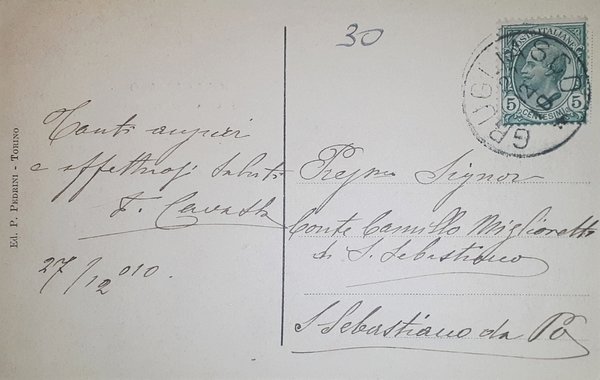 30
POSTE ITALIANE
5 CENTESIMI 5
GRUGLIASCO
Tanti auguri
e affettuosi saluti
F.
27/12 910.
Ed. P. PEDRINI - TORINO
Pregmo Signor
Conte Camillo Miglioretti
di S. Sebastiano
S. Sebastiano da Po